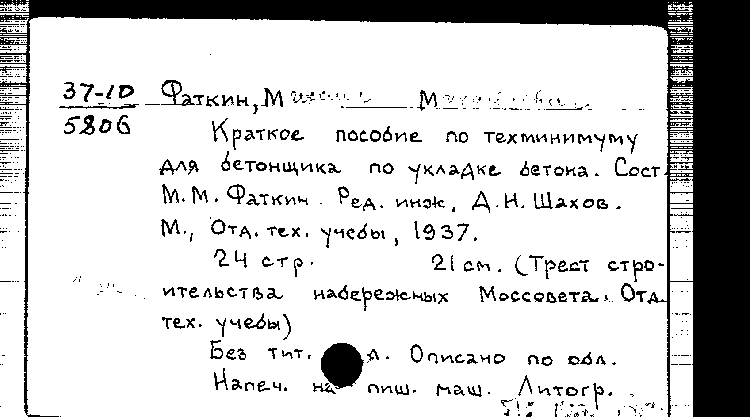 37-10 Фаткин, М
5806
Краткое пособие по техминимуму
для бетонщика по укладке бетона. Сост.
М.М. Фаткин. Ред. инж. Д.Н. Шахов.
М., Отд. тех. учебы, 1937.
24 стр. 21 см. (Трест стро-
ительства набережных Моссовета. Отд.
тех. учебы)
Без тит. л. Описано по обл.
Напеч. на пиш. маш. Литогр.